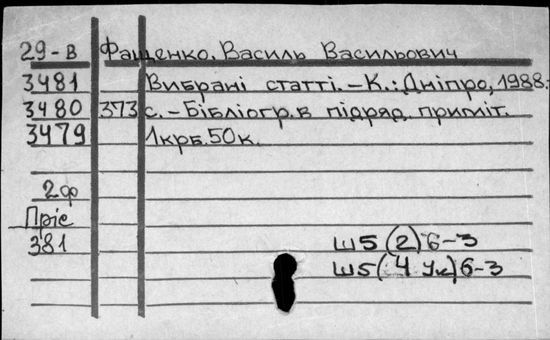 29-в Фащенко, Василь Васильович
3481 Вибрані статті.-К.:Дніпро,1988.-
3480 373 с.-Бібліогр.в підряд. приміт.
3479 1крб.50к.
2ф
Пріс
381 Ш5(2)6-3
Ш5(4Ук)6-3